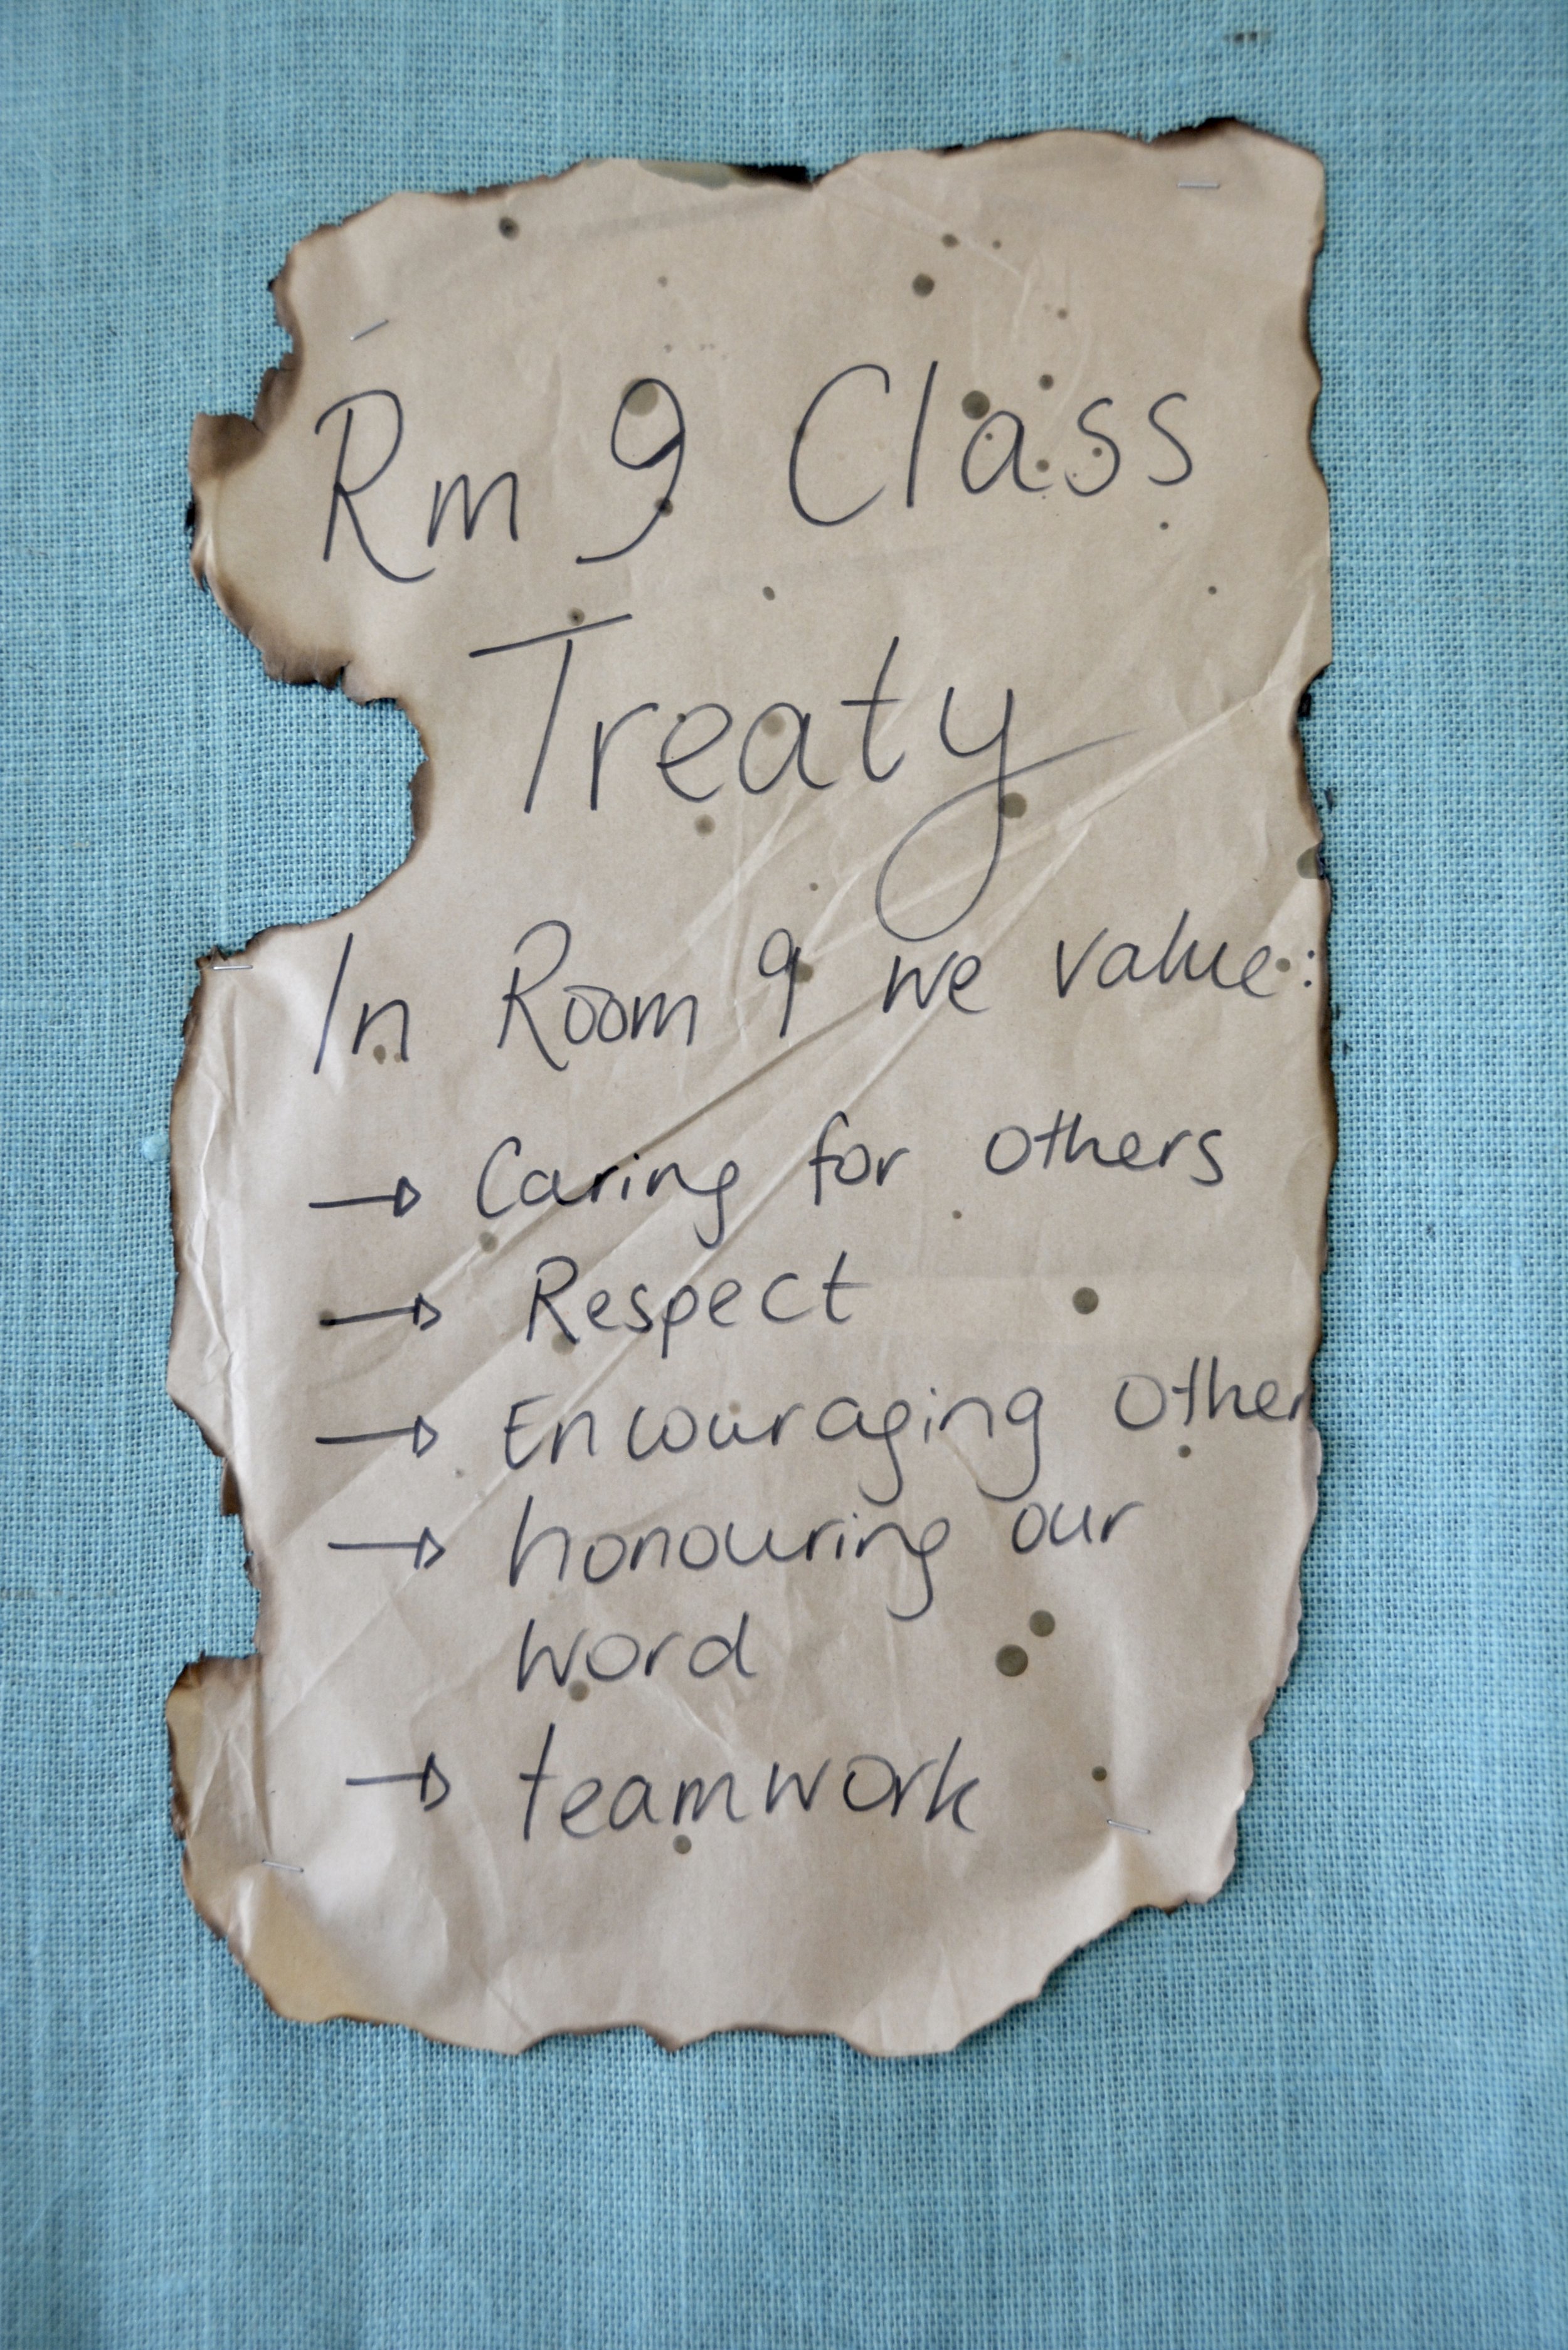 Rm 9 Class
Treaty
In Room 9 we value:
→ Caring for others
→ Respect
→ Encouraging other
→ honouring our
word
→ teamwork